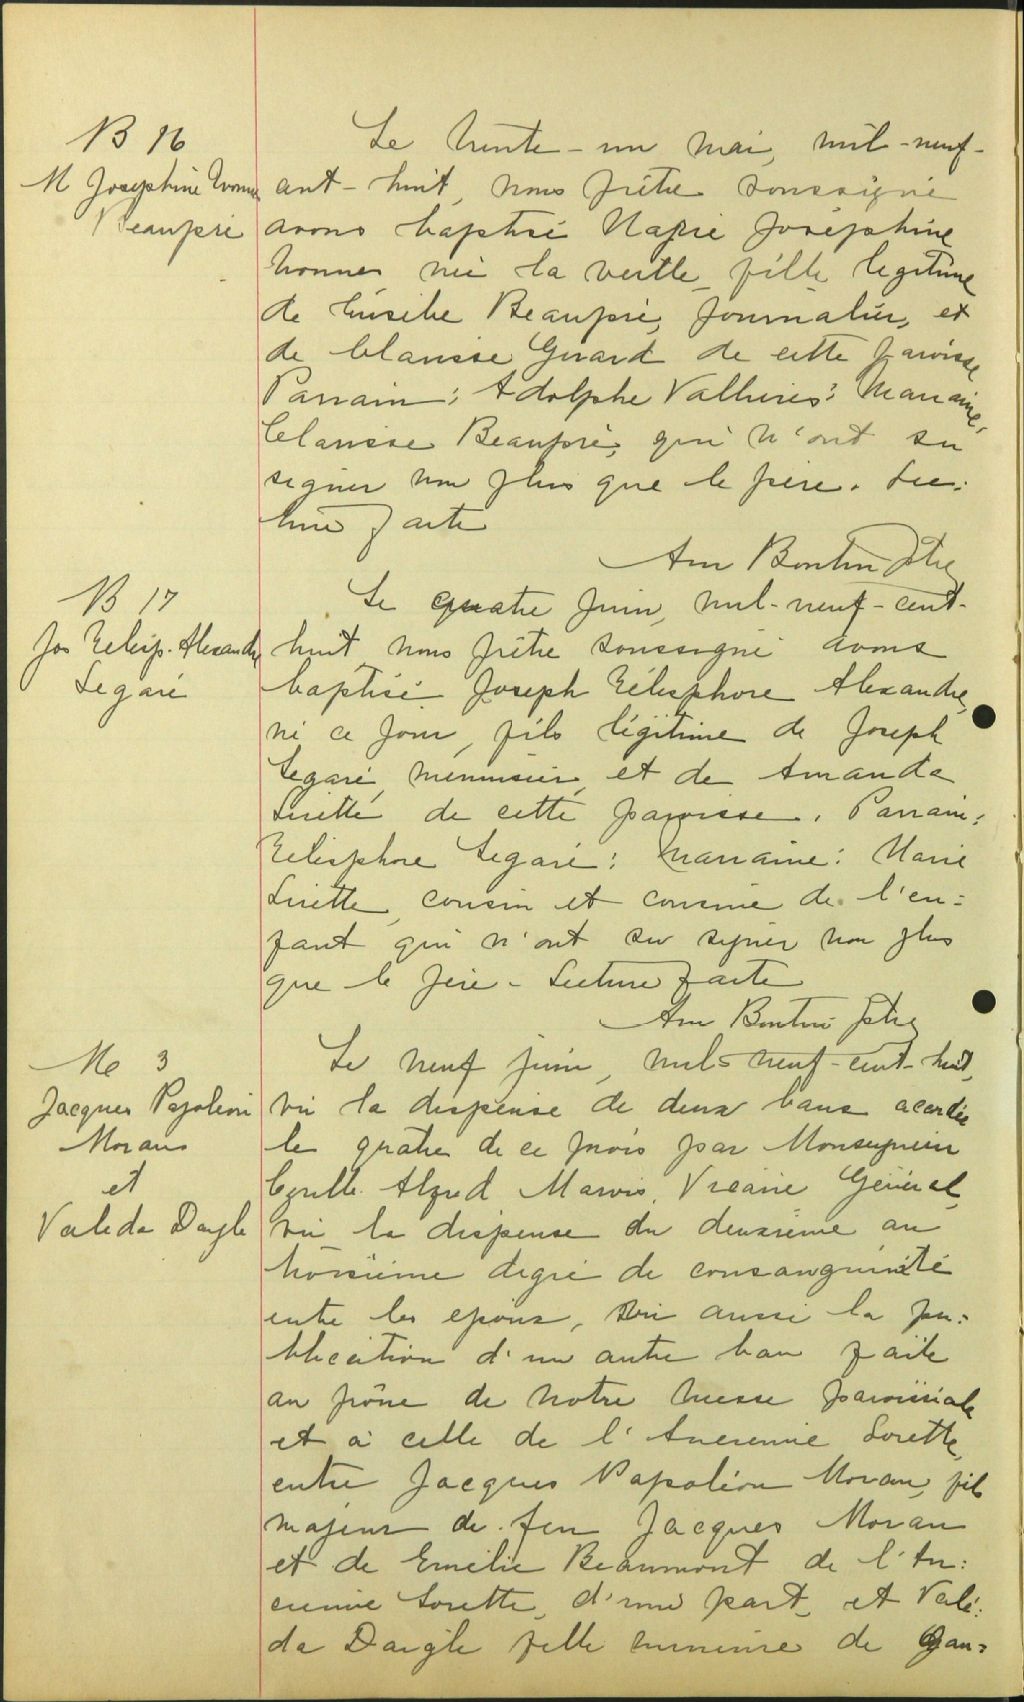 B 16
M Josephine Yvonne
Beaupré
Le trente-un mai, mil-neuf-
cent-huit, nous prêtre soussigné
avons baptisé Marie Joséphine
Yvonne née la veille, fille légitime
de Eusèbe Beaupré, journalier, et
de Clarisse Girard de cette paroisse
Parrain: Adolphe Vallières: Marraine,
Clarisse Beaupré, qui n'ont su
signer non plus que le père. Lec:
ture faite
Am Boutin Ptre
B 17
Jos Télesp. Alexandre
Legaré
Le quatre juin, mil-neuf-cent-
huit, nous prêtre soussigné avons
baptisé Joseph Télesphore Alexandre,
né ce jour, fils légitime de Joseph
Legaré, menuisier, et de Amanda
de cette paroisse. Parrain:
Télesphore Legaré: Marraine: Marie
cousin et cousine de l'en:
fant qui n'ont su signer non plus
que le père - Lecture faite
Am Boutin Ptre
Me 3
Jacques Napoléon
Moran
et
Valeda Daigle
Le neuf juin, mil-neuf-cent-huit,
vu la dispense de deux bans accordée
le quatre de ce mois par Monseigneur
Cyrille Alfred Marois, Vicaire Général,
vu la dispense du deuxième au
troisième degré de consanguinité
entre les époux, vu aussi la pu:
blication d'un autre ban faite
au prône de notre messe paroissiale
et à celle de l'Ancienne Lorette,
entre Jacques Napoléon Moran, fils
majeur de feu Jacques Moran
et de Emélie Beaumont de l'An:
cienne Lorette, d'une part, et Valé:
da Daigle fille mineure de Gau: